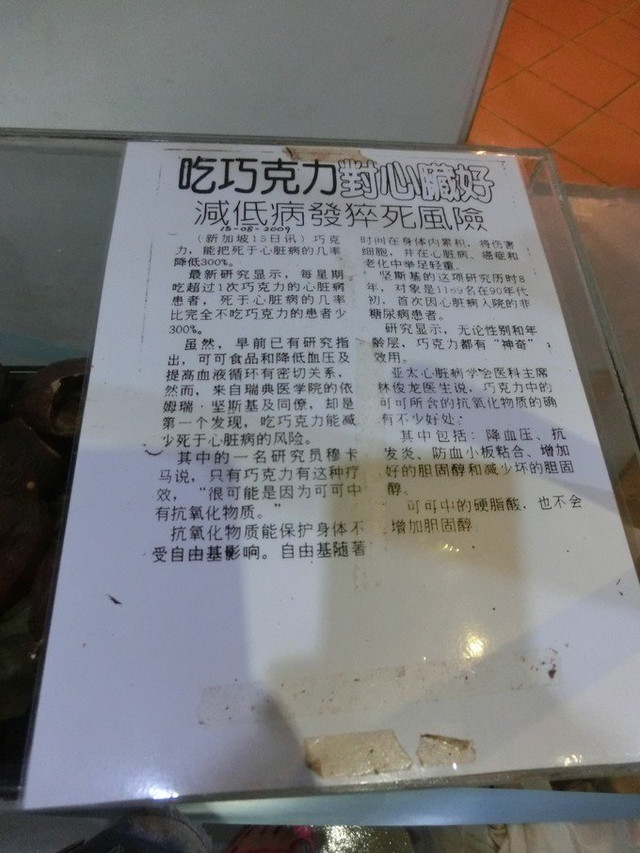 吃巧克力對心臟好
減低病發猝死風險
15-08-2009
(新加坡15日讯) 巧克
力，能把死于心脏病的几率
降低300%。
最新研究显示，每星期
吃超过1次巧克力的心脏病
患者，死于心脏病的几率
比完全不吃巧克力的患者少
300%。
虽然，早前已有研究指
出，可可食品和降低血压及
提高血液循环有密切关系，
然而，来自瑞典医学院的依
姆瑞·坚斯基及同僚，却是
第一个发现，吃巧克力能减
少死于心脏病的风险。
其中的一名研究员穆卡
马说，只有巧克力有这种疗
效，“很可能是因为可可中
有抗氧化物质。”
抗氧化物质能保护身体不
受自由基影响。自由基随著
时间在身体内累积，将伤害
细胞，并在心脏病、癌症和
老化中举足轻重。
坚斯基的这项研究历时8
年，对象是1169名在90年代
初，首次因心脏病入院的非
糖尿病患者。
研究显示，无论性别和年
龄层，巧克力都有“神奇”
效用。
亚太心脏病学会医科主席
林俊龙医生说，巧克力中的
可可所含的抗氧化物质的确
有不少好处：
其中包括：降血压、抗
发炎、防血小板粘合、增加
好的胆固醇和减少坏的胆固
醇。
可可中的硬脂酸，也不会
增加胆固醇